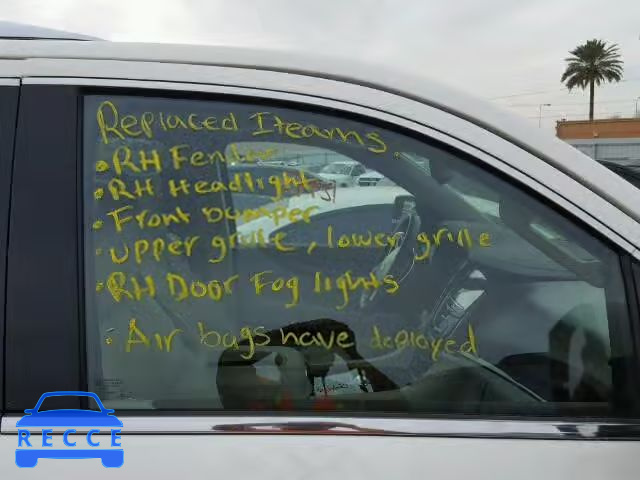 Replaced Iteams
• RH Fender
• RH Headlight
• Front bumper
• upper grille, lower grille
• RH Door Fog lights
• Air bags have deployed
RECCE